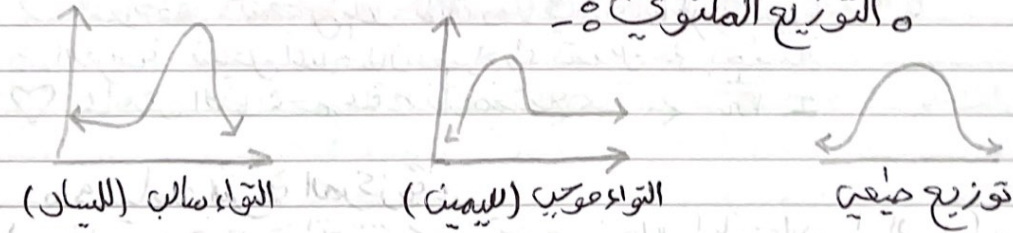 التوزيع الملتوي :-
توزيع طبيعي
التواء موجب (لليمين)
التواء سالب (لليسار)